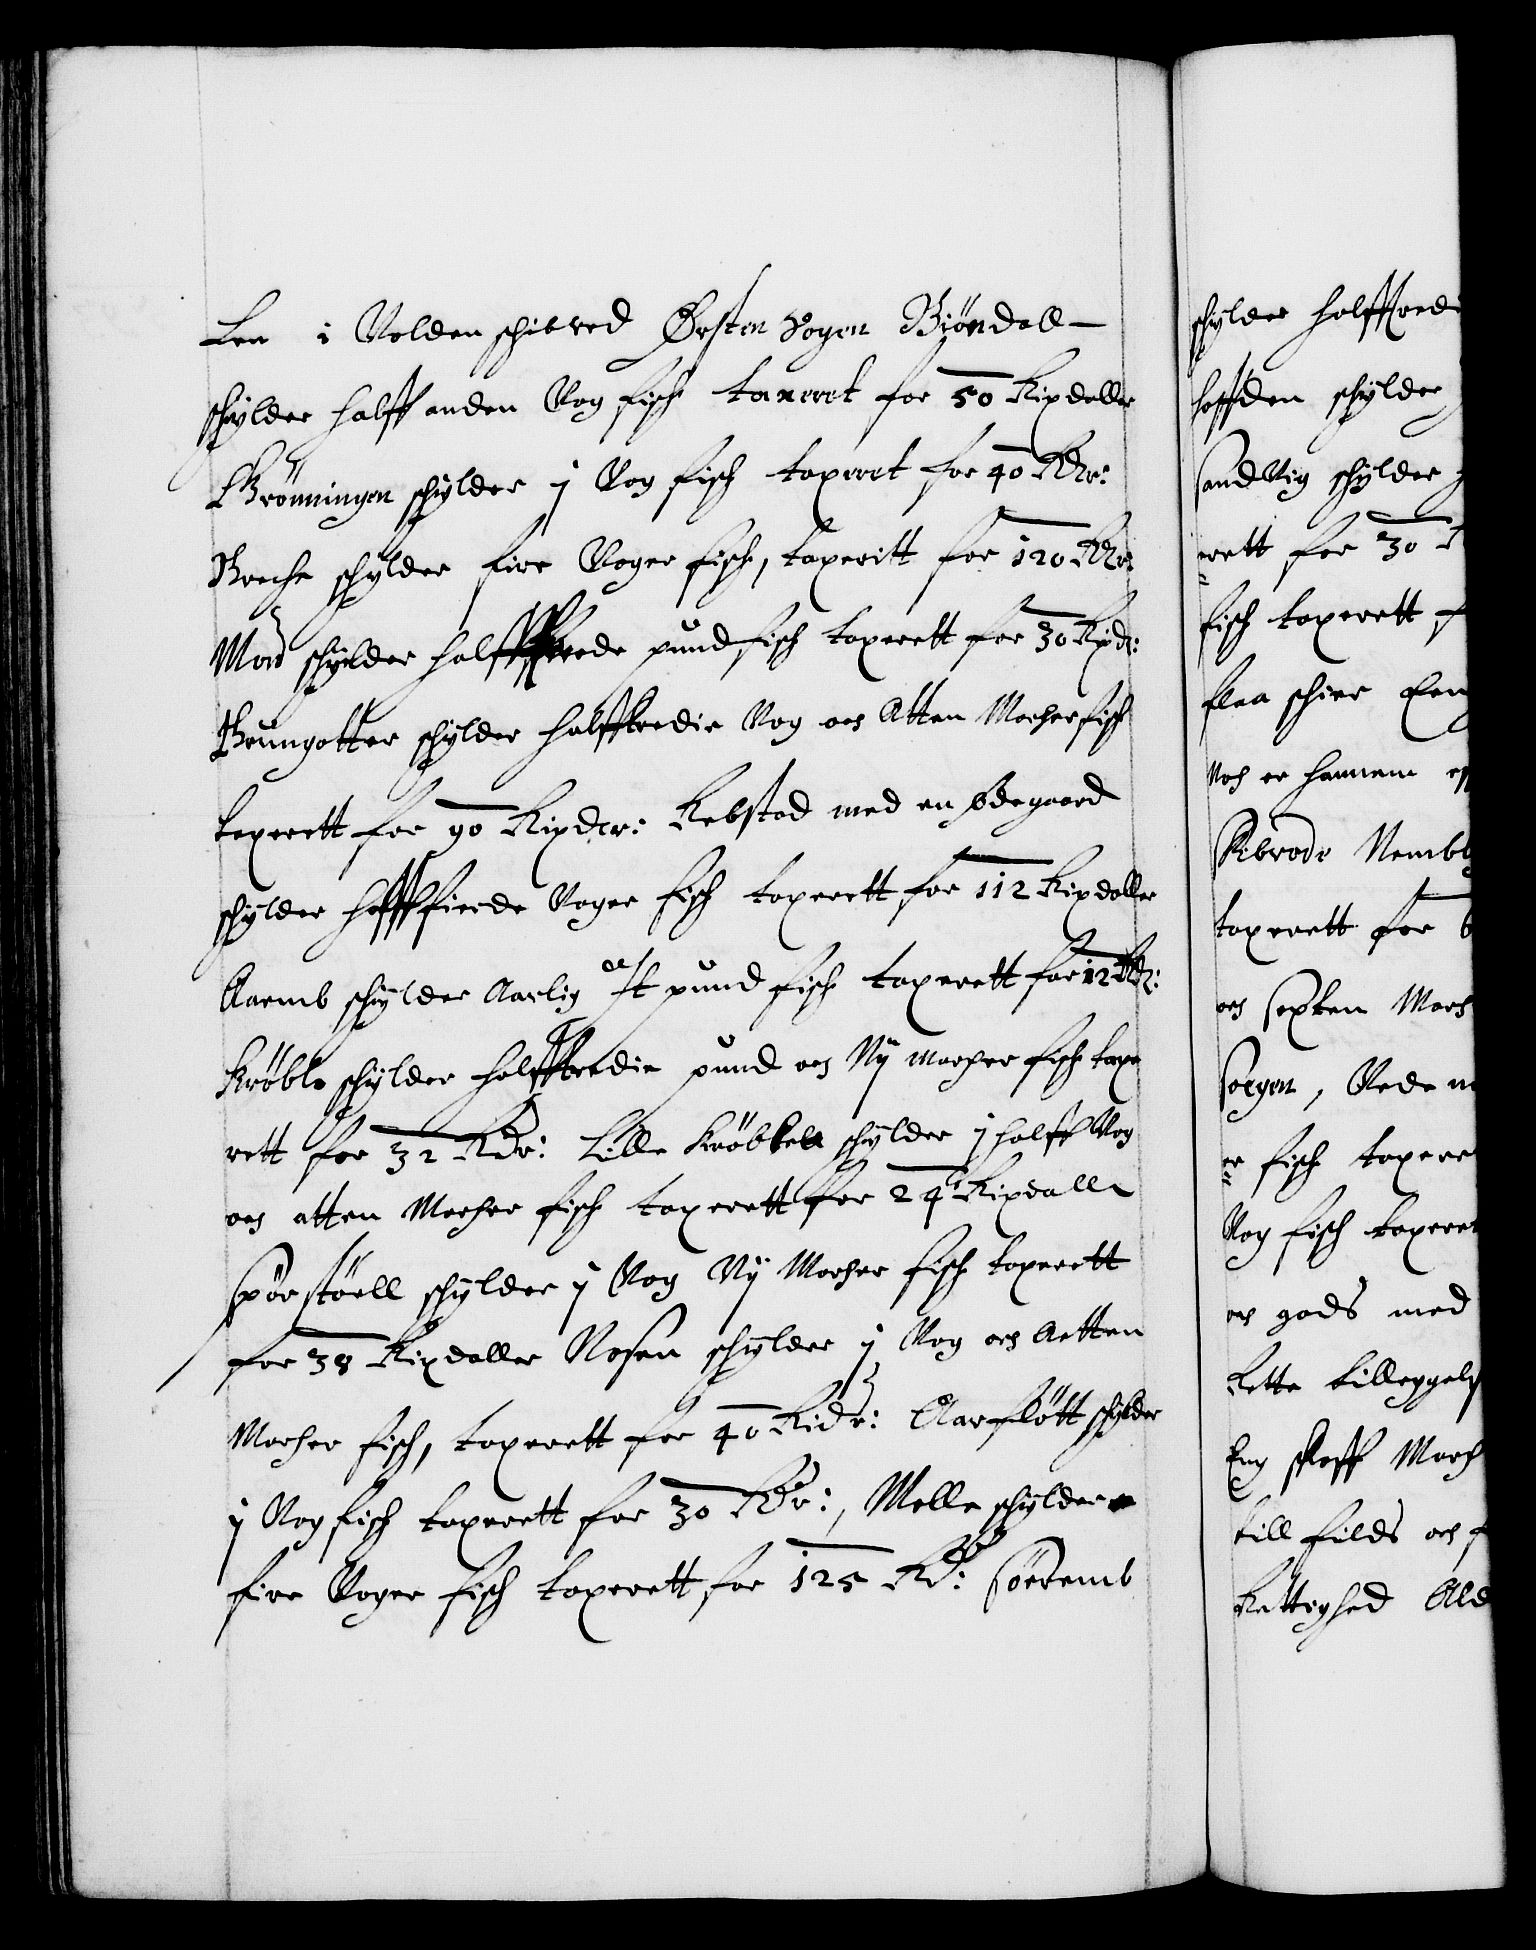 Len i Volden schibred Ørsten Sogen Biöndall
schylder halff anden Vog fisch taxeret for 50 Rixdaller
Brönningen schylder j Vog fisch taxeret for 40 Rdr:
Breche schylder fire Voger fisch, taxeritt for 120 Rdr
Moo schylder halfftrede pund fisch taxerett for 30 Rixdr:
Brungotter schylder halfftredie Vog och Atten Mercher fisch
taxerett for 90 Rixder: Rebstad med en ödegaard
schylder halff fierde Voger fisch taxerett for 112 Rixdaller
Aaremb schylder Aarlig et pund fisch taxerett for 12 Rdr:
Kröble schylder halfftredie pund och Nij mercher fisch taxe
rett for 32 Rdr: Lille Kröbbell schylder j halff Vog
och atten Mercher fisch taxerett for 24 Rixdalle
Spörstöell schylder j Vog Nij Mercher fisch taxerett
for 38 Rixdaller Nosen schylder j Vog och Aetten
Mercher fisch, taxerett for 40 Rixdr: Aarflött schylder
j Vog fisch taxerett for 30 Rdr:, Melle schylder
fire Voger fisch taxerett for 125 Rdr: Söeremb
schylder halfftredi
hoffden schylder
Sandvig schylder
erett for 30 R
fisch taxerett f
flaa schier Een
Noch er hannem
Skibrode Nembl
taxerett for
och Sexten Merch
Sorgen, Vede
er fisch taxere
Vog fisch taxerett
och gods med
Rette tilleggels
Eng skoff March
till fields och f
Rettighed Ald